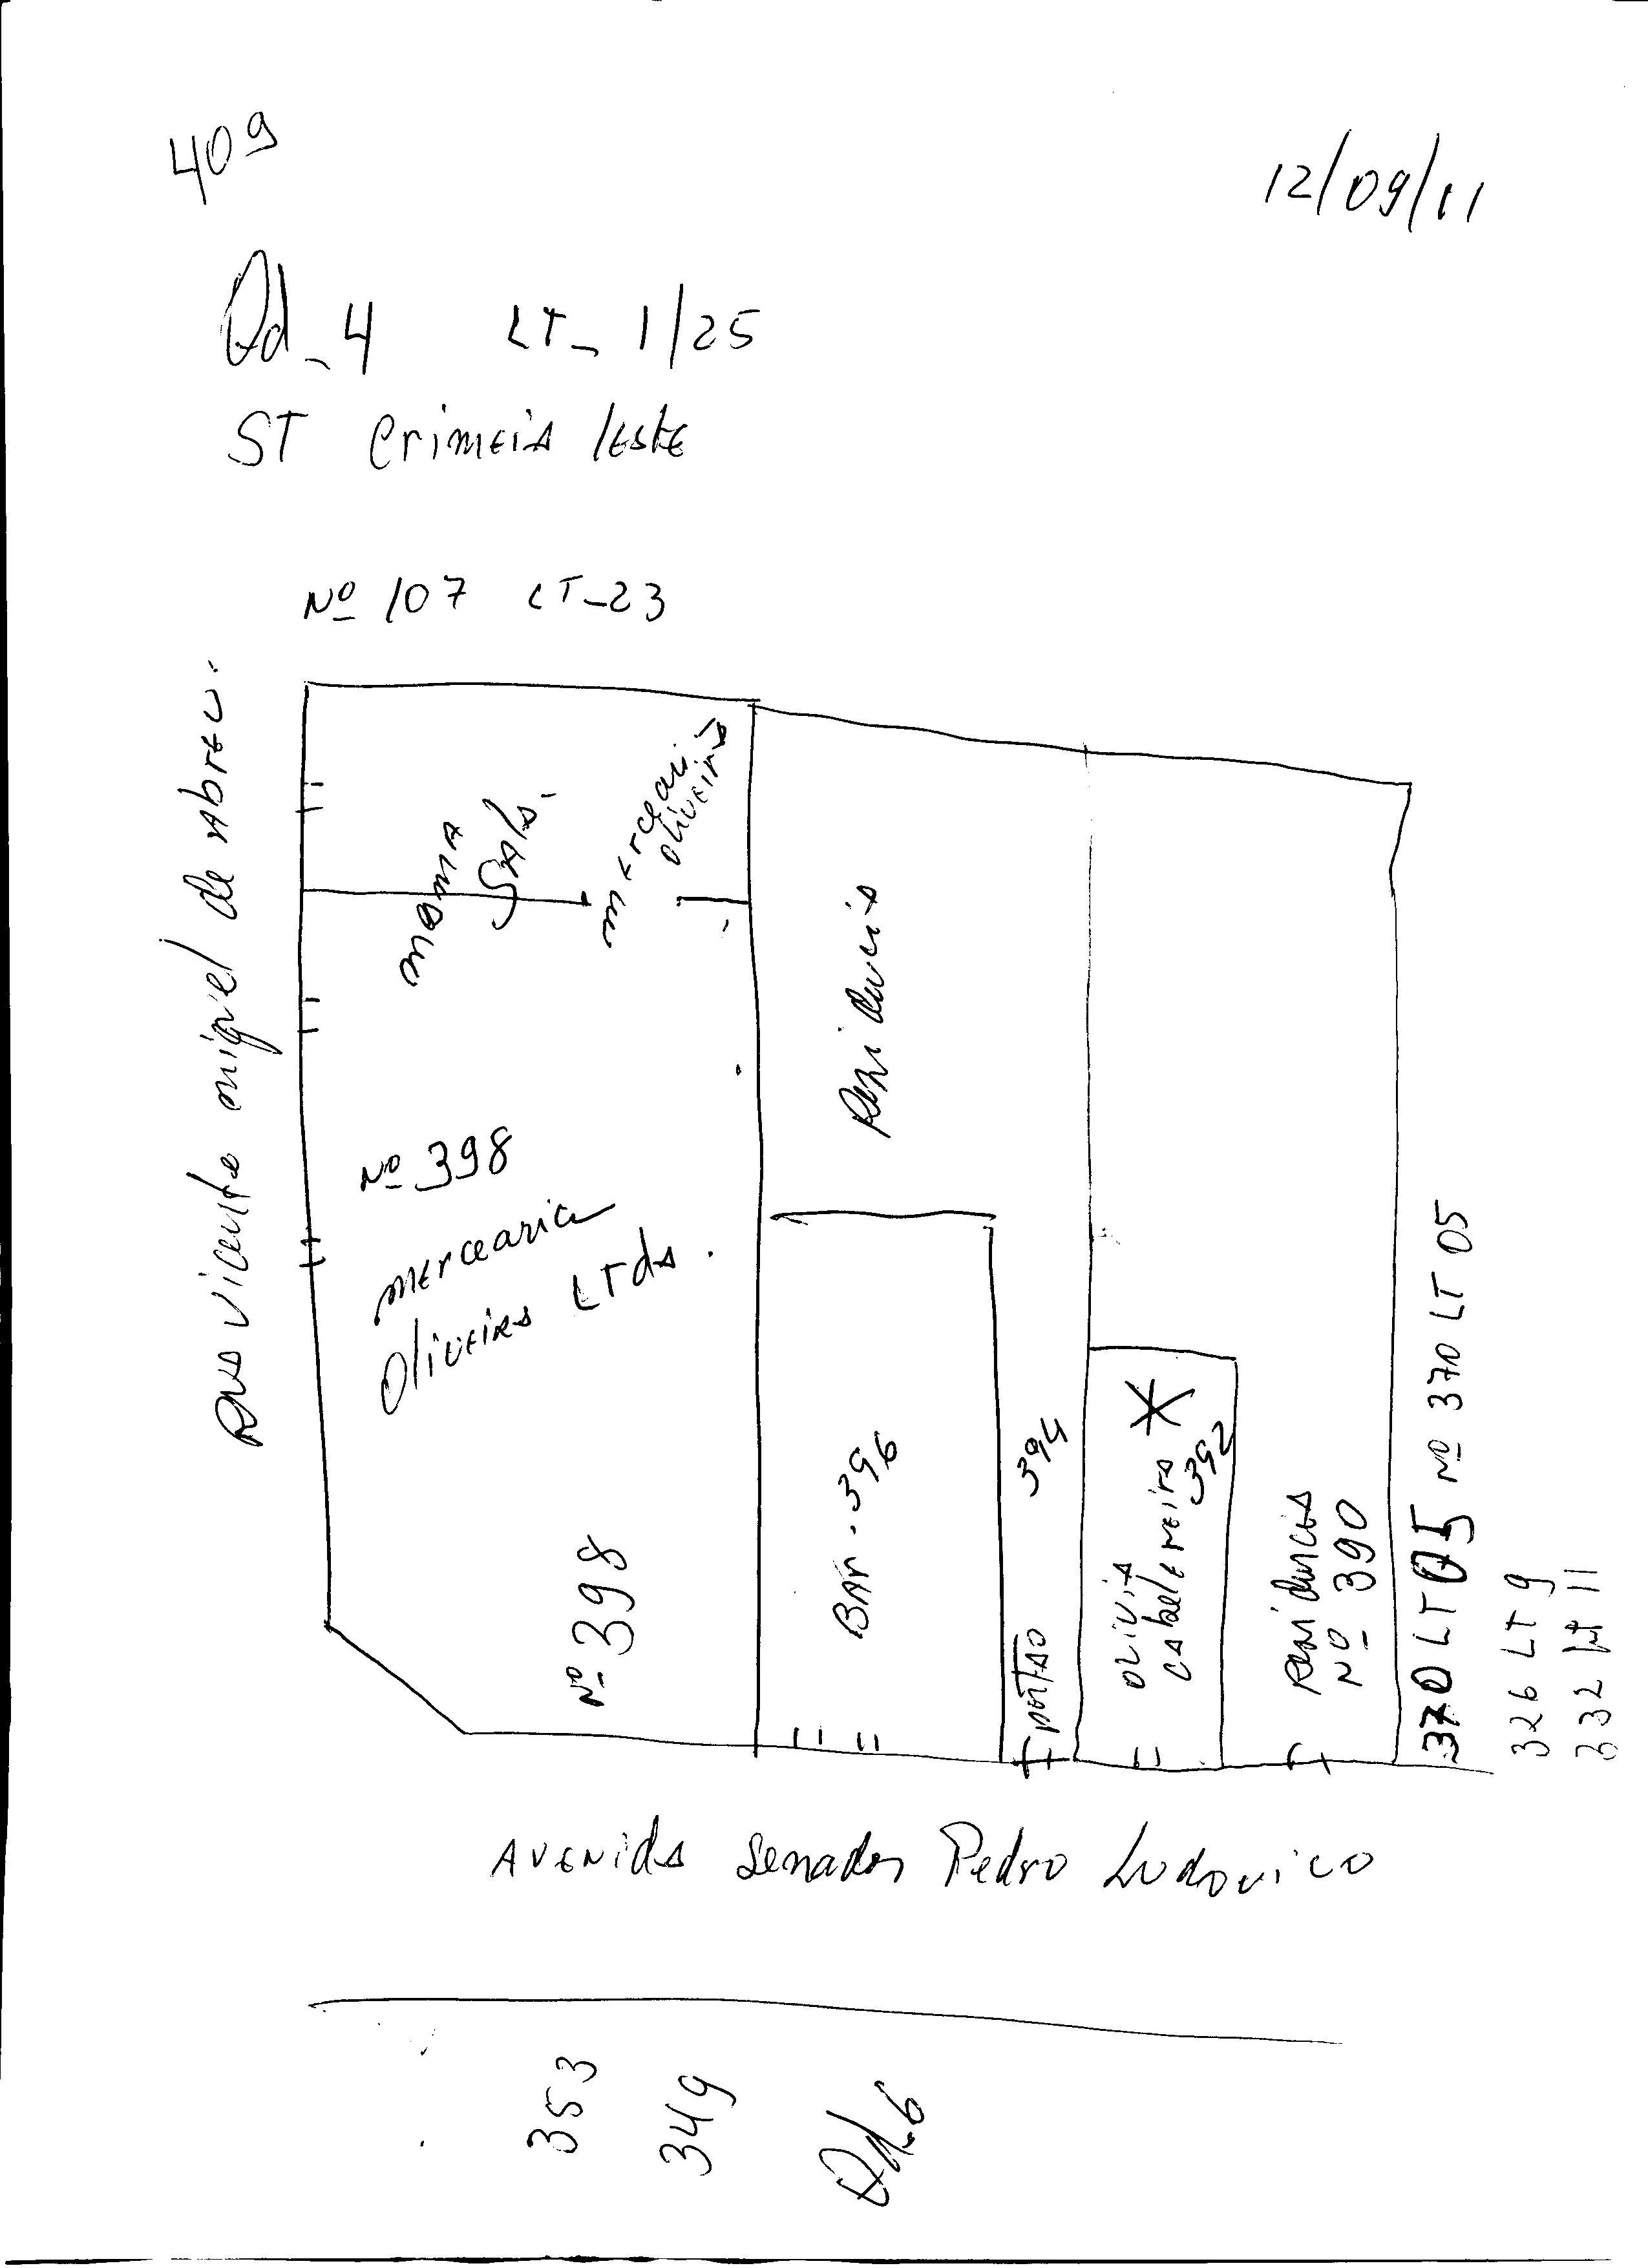 409
12/09/11
Qd_4 LT_ 1/25
ST Crimeia leste
Nº 107 LT_23
Rua Vicente miguel de Abreu.
mesma
Sala.
merceari
oliveira
Residencia
Nº 398
mercearia
Oliveira LTda.
Nº 398
BAr. 396
394
portão
olivia
cabeleireira
392
Residencia
Nº 390
370 LT 05 Nº 370 LT 05
326 LT 9
332 LT 11
AVENida Senador Pedro Ludovico
353
349
Qd.6